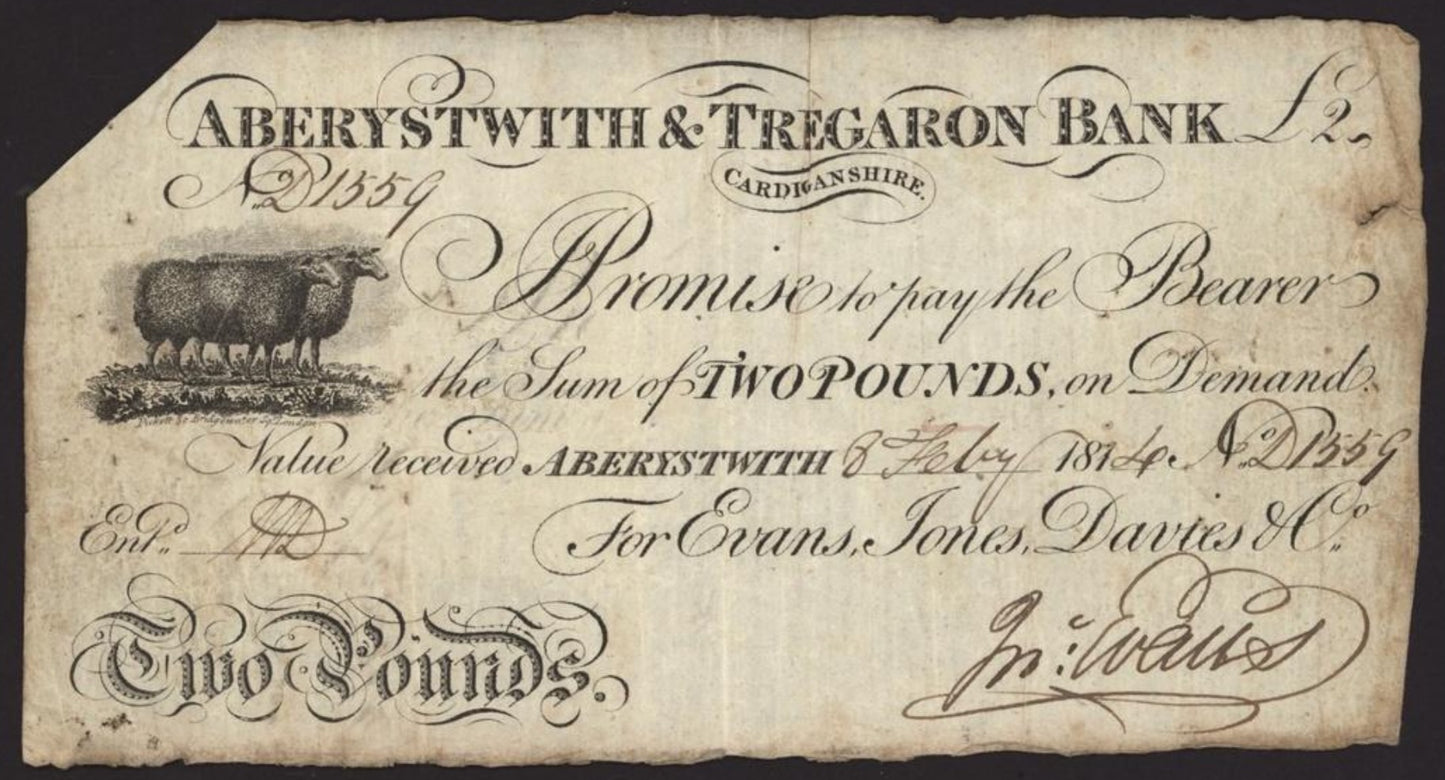 ABERYSTWITH & TREGARON BANK £2
CARDIGANSHIRE.
No. D1559
I Promise to pay the Bearer
the Sum of TWO POUNDS, on Demand.
Pickett Sc. Bridgewater Sq. London
Value received ABERYSTWITH 8 Feby 1814 No. D1559
Entd. For Evans, Jones, Davies & Co.
Two Pounds. Jno: Evans